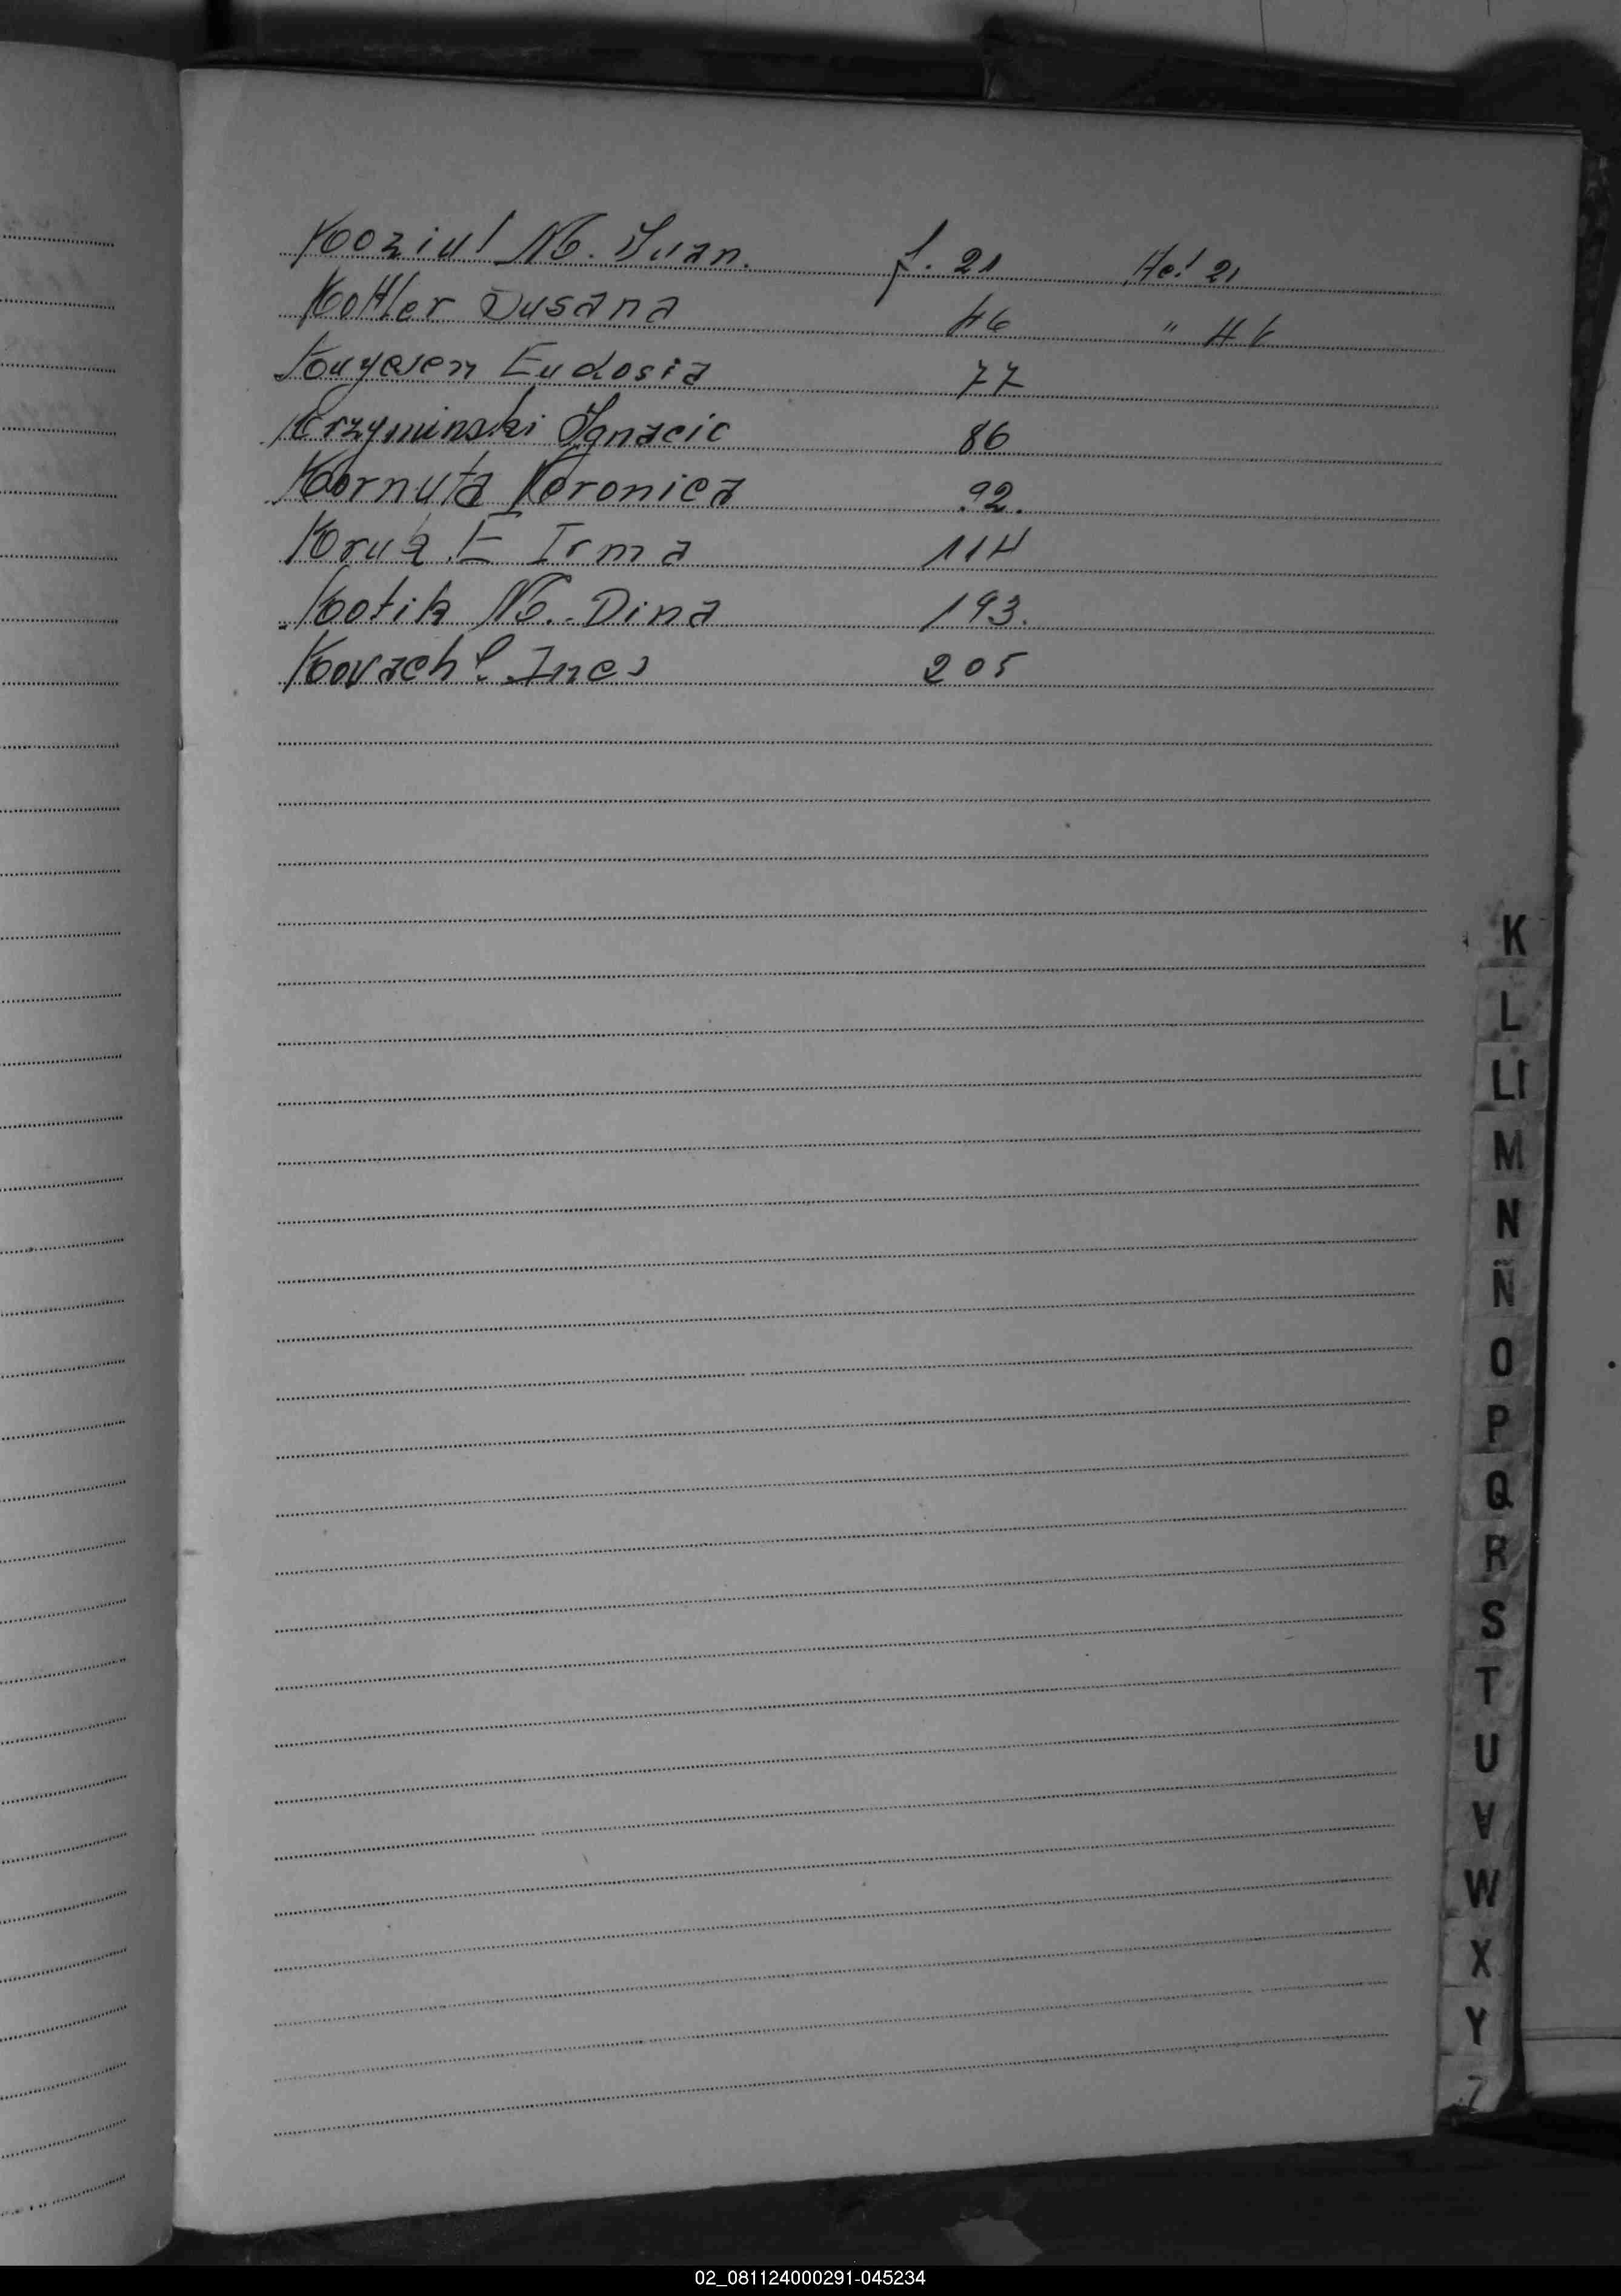 Koziul M. Juan. f. 21 Ac! 21
Kotler Susana 46 " 46
Eudosia 77
Krzyminski Ignacio 86
Kornuta Veronica 92.
Kruk E Irma 114
Kotik M. Dina 193.
Kovach C. Ines 205
K
L
Ll
M
N
Ñ
O
P
Q
R
S
T
U
V
W
X
Y
Z
02_081124000291-045234